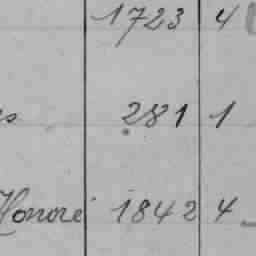 1723 4
281 1
Honoré 1842 4